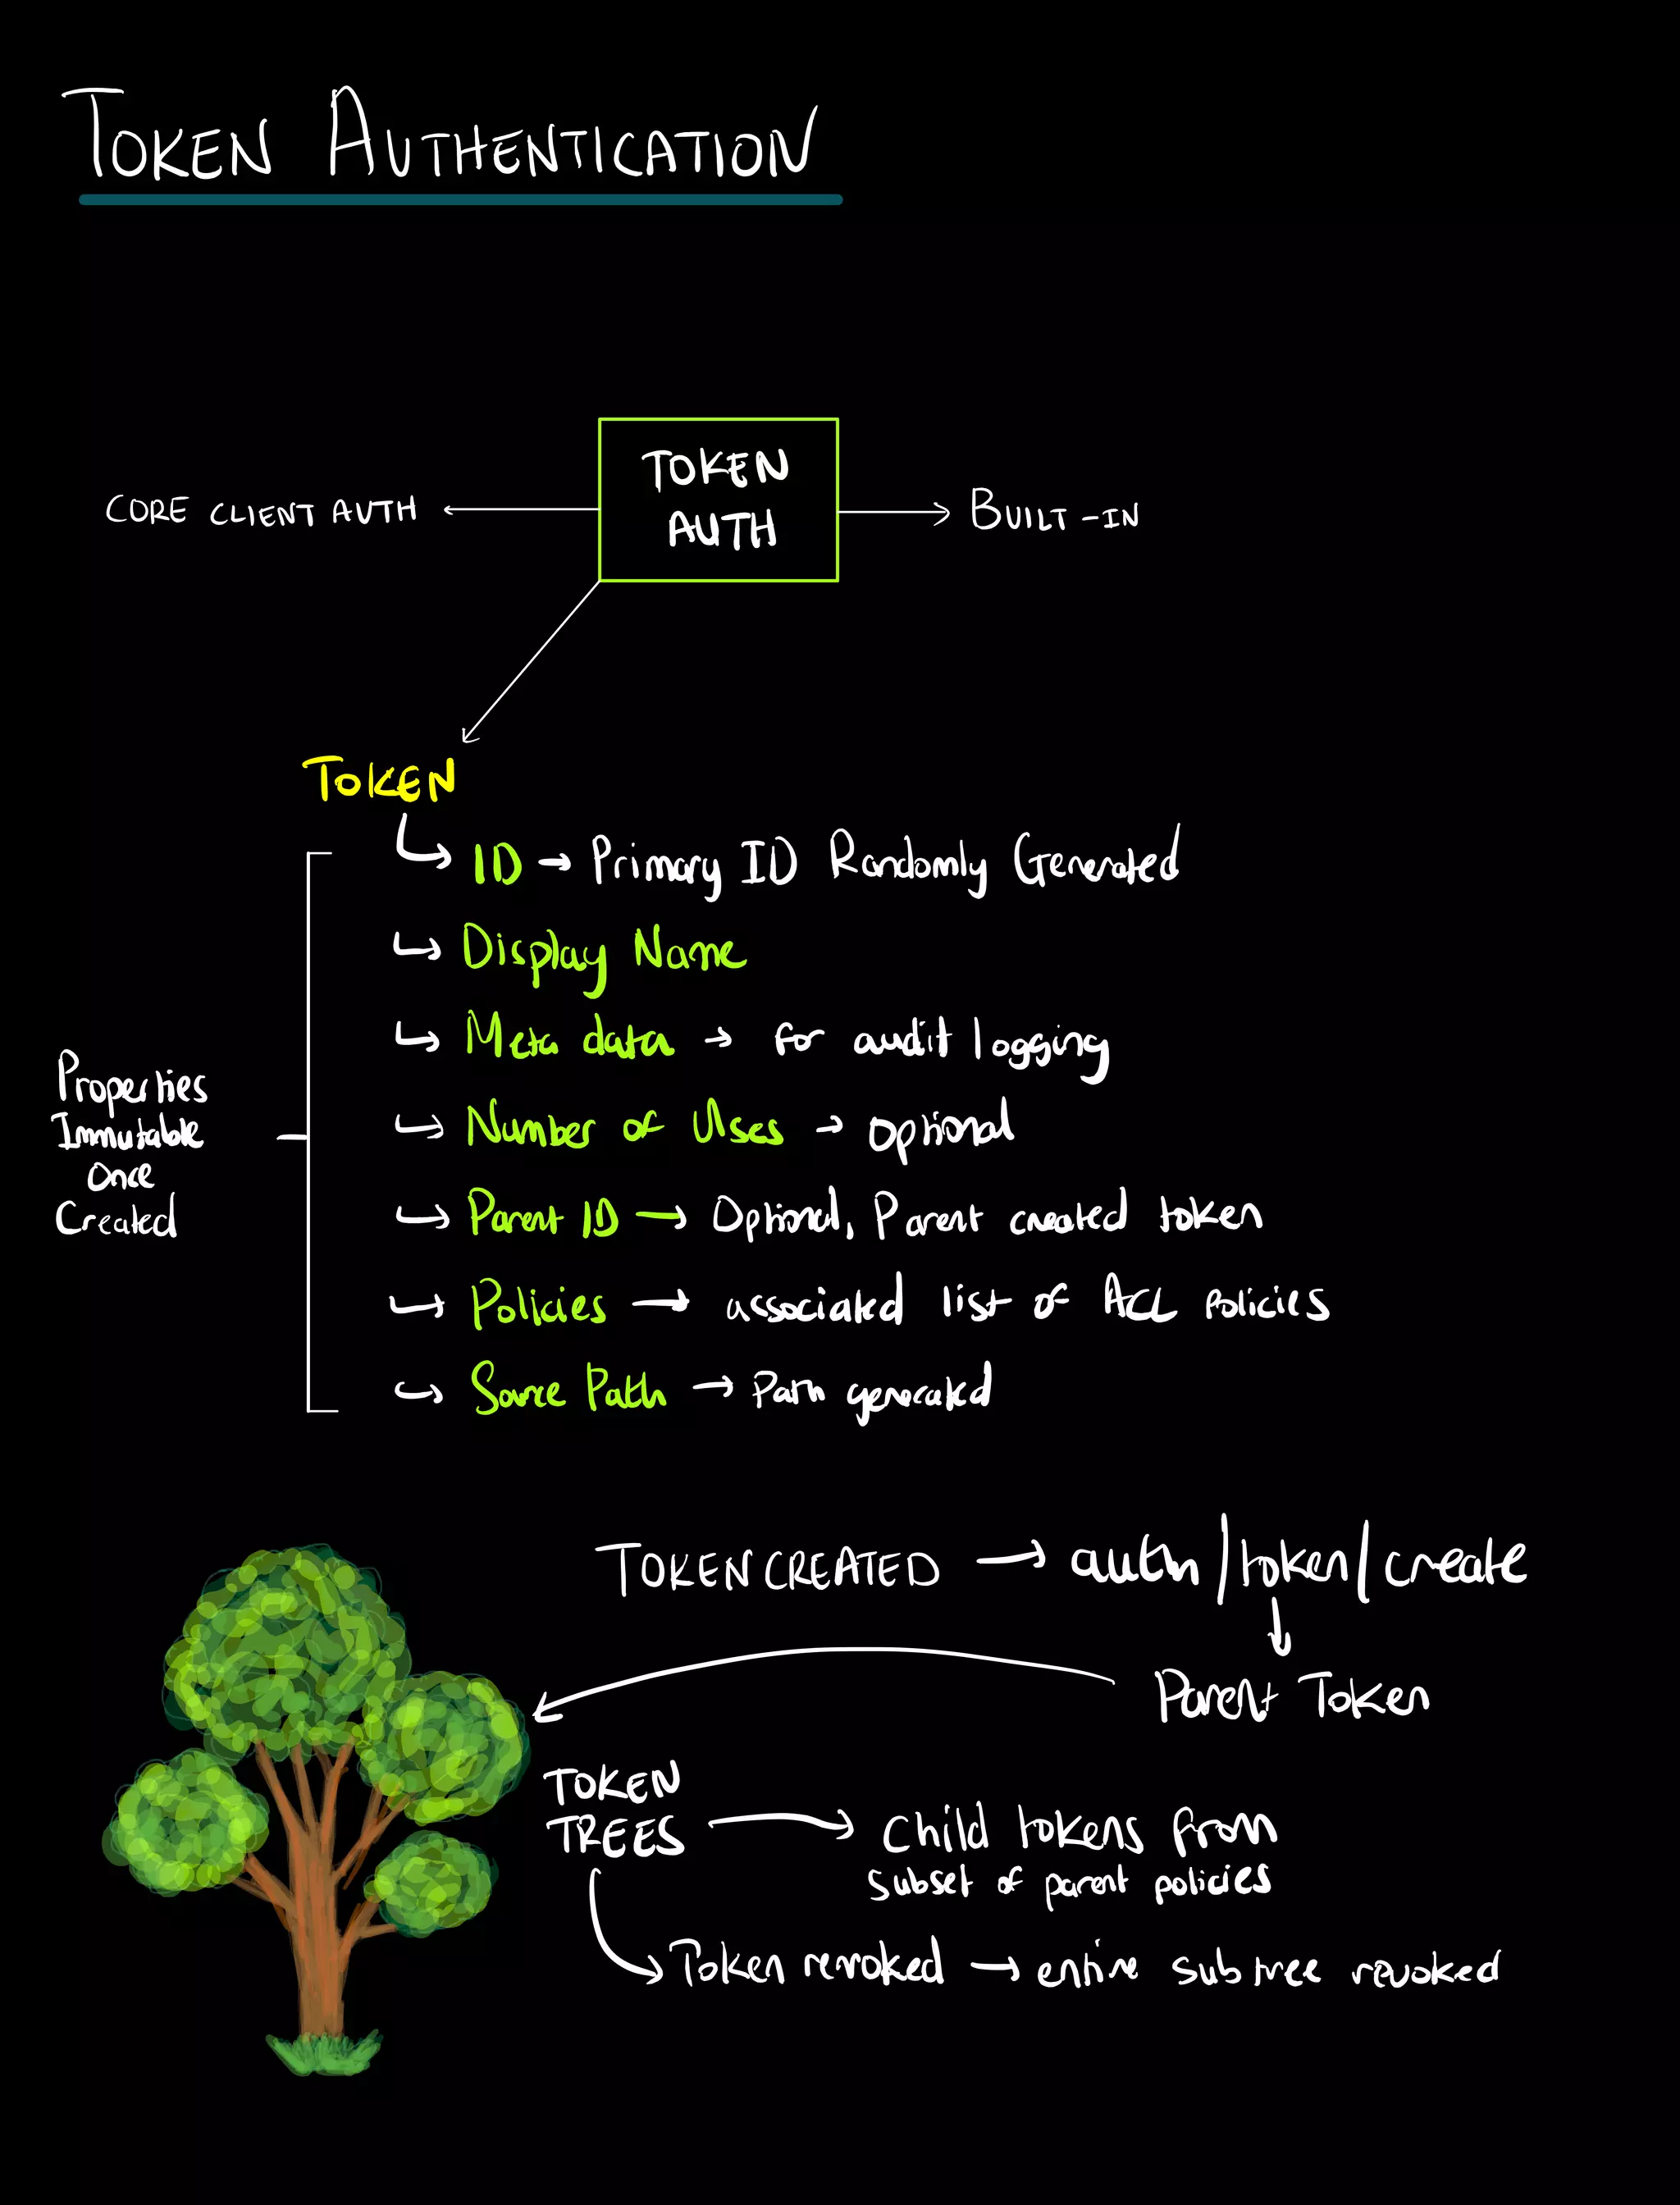 TOKEN AUTHENTICATION
TOKEN
AUTH
CORE CLIENT AUTH
BUILT-IN
TOKEN
ID → Primary ID Randomly Generated
Display Name
Meta data → for audit logging
Number of Uses → optional
Parent ID → Optional, Parent created token
Policies → associated list of ACL policies
Source Path → Path generated
Properties
Immutable
Once
Created
TOKEN CREATED → auth/token/create
Parent Token
TOKEN
TREES → Child tokens from
subset of parent policies
Token revoked → entire subtree revoked